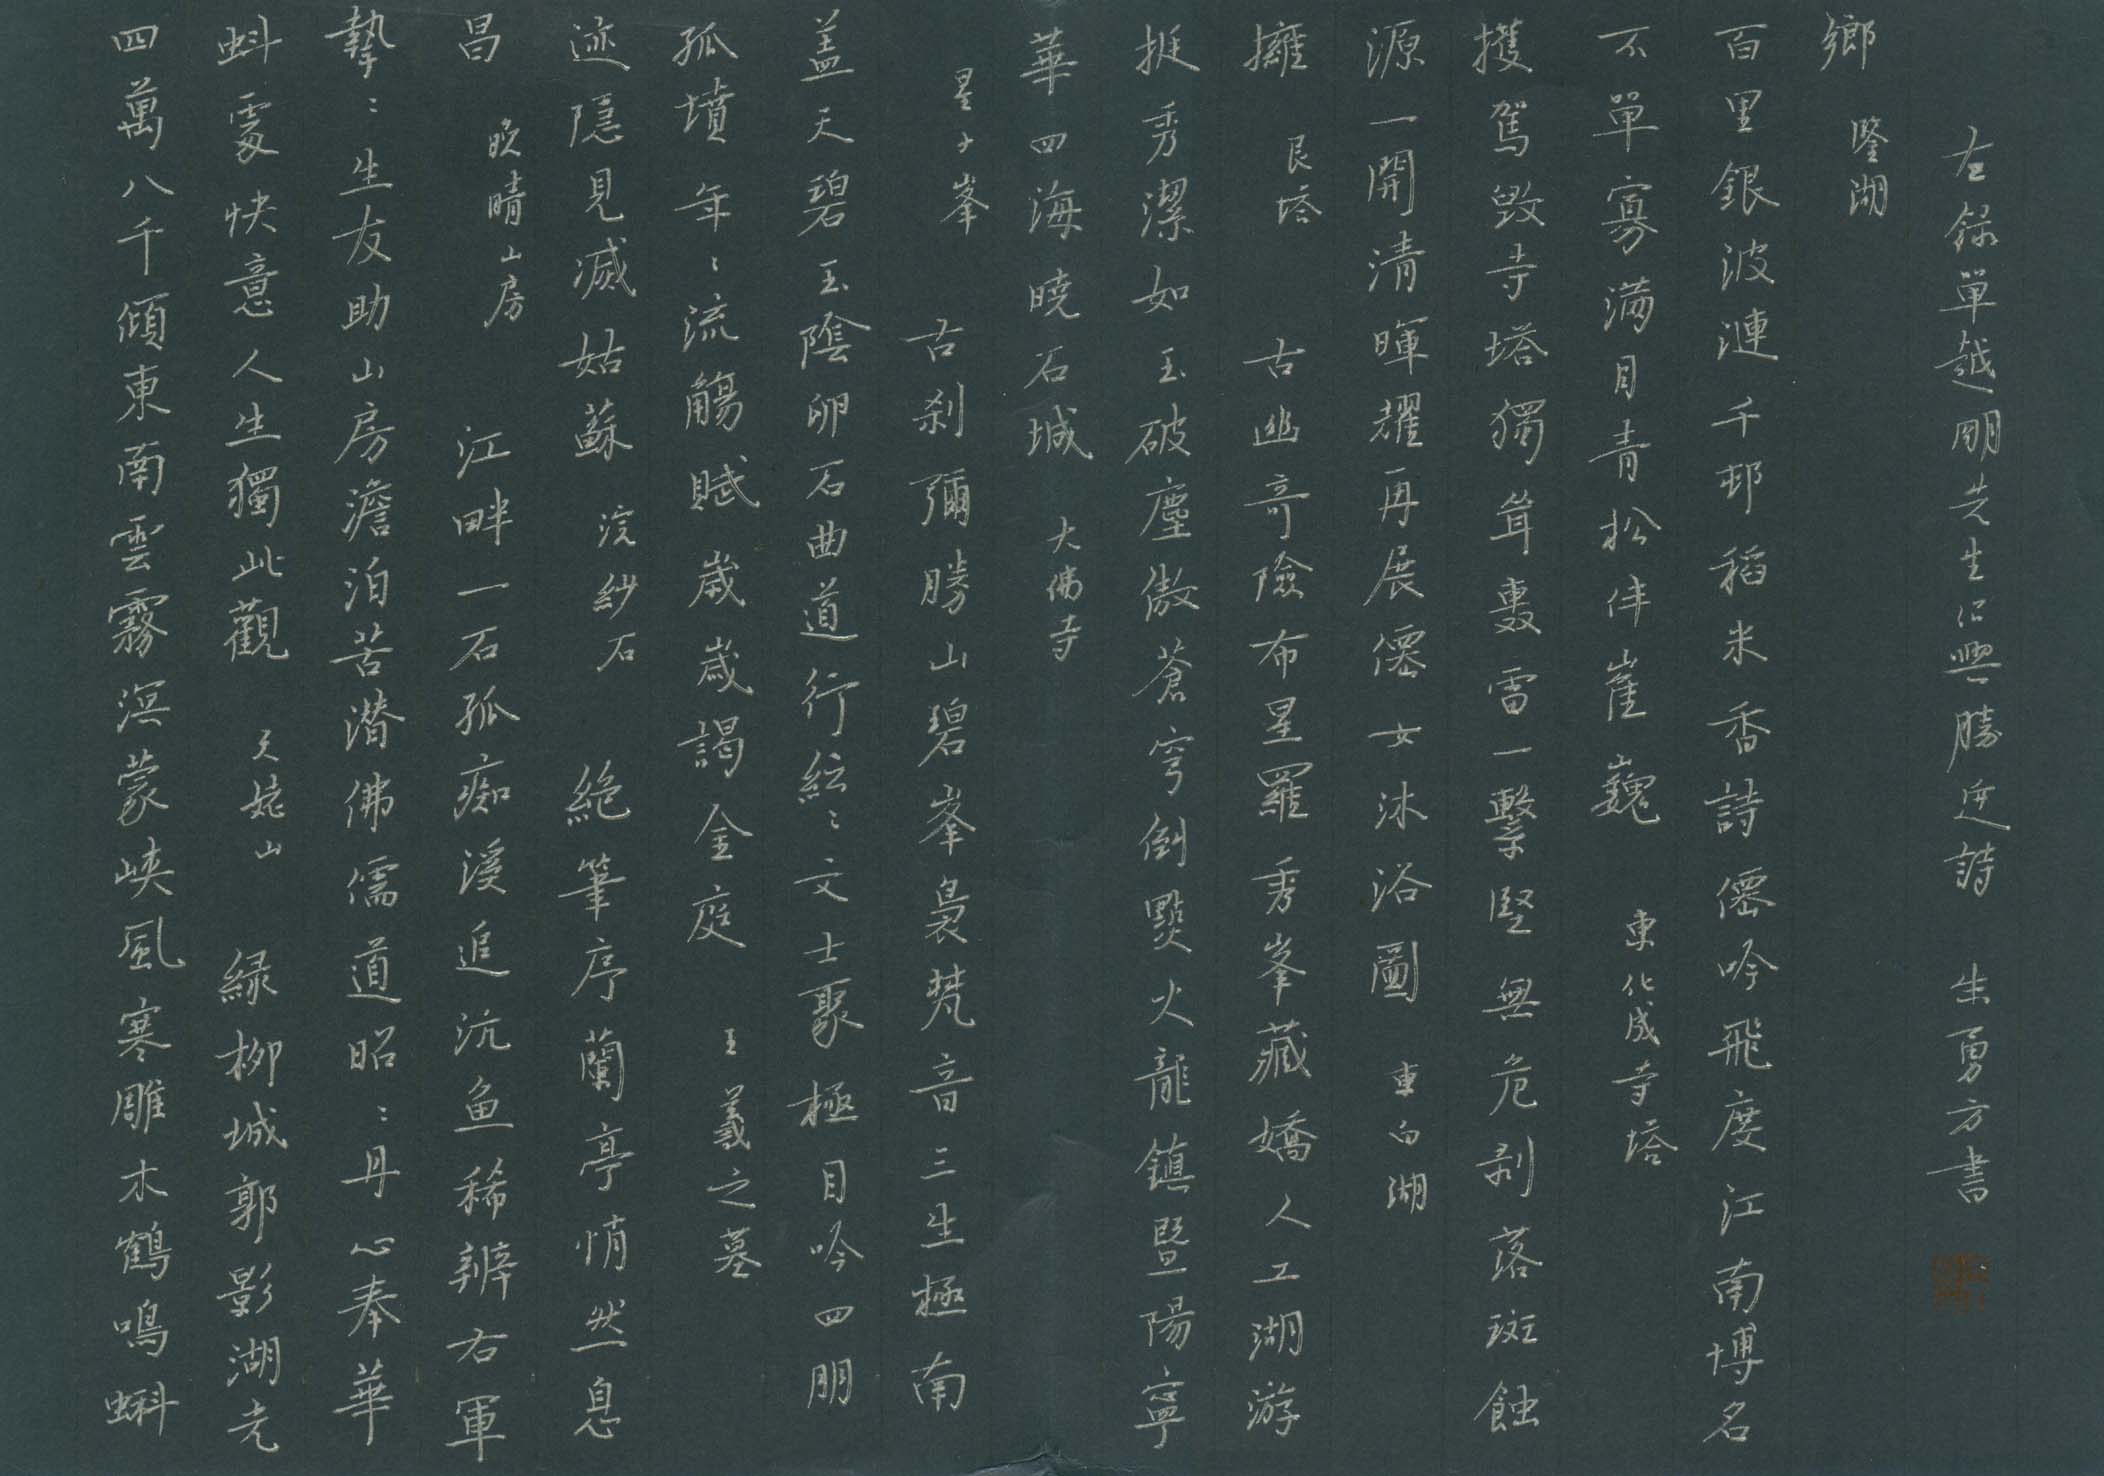 四萬八千傾東南雲霧溟蒙峽風寒雕木鶴鳴蝌
蚪處快意人生獨此觀 天姥山 緑柳城郭影湖光
摯〻生友助山房澹泊苦潜佛儒道昭〻丹心奉華
昌 晚晴山房 江畔一石孤痴溪追沆鱼稀辨右軍
迹隱見滅姑蘇 浣紗石 絶筆序蘭亭悄然息
孤墳年〻流觴賦歲歲謁金庭 王羲之墓
盖天碧玉陰卵石曲道行絃〻文士聚極目吟四朋
星子峯 古刹彌勝山碧峯裊梵音三生極南
華四海曉石城 大佛寺
挺秀潔如玉破塵傲蒼穹倒火龍鎮暨陽寧
擁 艮塔 古幽奇險布星羅秀峯藏嬌人工湖游
源一開清暉耀再展僊女沐浴圖 東白湖
攫駕毁寺塔獨耸轟雷一擊堅無危剥落斑蝕
不單寡满目青松伴崔巍 東化成寺塔
百里銀波漣千邨稻米香詩僊吟飛度江南博名
鄉 鑒湖
左録單越明先生紹興勝迹詩 生勇方書